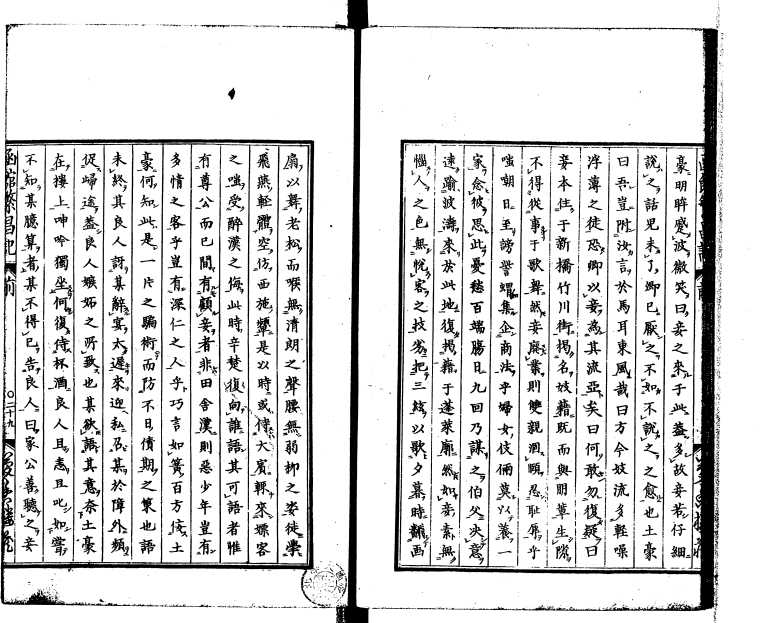 豪明眸蹙波微笑曰妾之來于此益多故妾若仔細
說之話見未了卿已厭之不如不說之之愈也土豪
曰吾豈附汝言於馬耳東風哉曰方今妓流多輕噪
浮薄之徒恐卿以妾為其流亞矣曰何敢勿復疑曰
妾本住于新橋竹川街揭名妓籍既而與朋輩生隙
不得從事于歌舞然妾廢業則雙親涸頤忍恥辱乎
嗤朝日至謗譽蝟集企商法乎婦女伎倆莫以養一
家念彼思此憂愁百端腸日九回乃謀之伯父決意
遠踰波濤來於此地復揭籍于蓬萊廓然如妾素無
惱人之色無悅客之技劣把三絃以歌夕暮時顏面
扇以舞老松而喉無清朗之聲腰無弱柳之姿徒學
飛燕輕體空仿西施顰是以時或侍大賓輒來嫖客
之嗤受醉漢之侮此時辛楚復向誰語其可語者惟
有尊公而已間有顧妾者非田舍漢則惡少年豈有
多情之客乎豈有深仁之人乎巧言如簧百方倚土
豪何知此是一片之騙術而防不日債期之策也語
未終其良人訝其辭宴太遲來迎私召某於障外頻
促歸途蓋良人嫉妬之所致也某欲語其意奈土豪
在樓上呻吟獨坐何復侍杯酒良人且恚且叱如嘗
不知某臆算者某不得已告良人曰家公善聽之妾
函館繁昌記 前 〇二十九